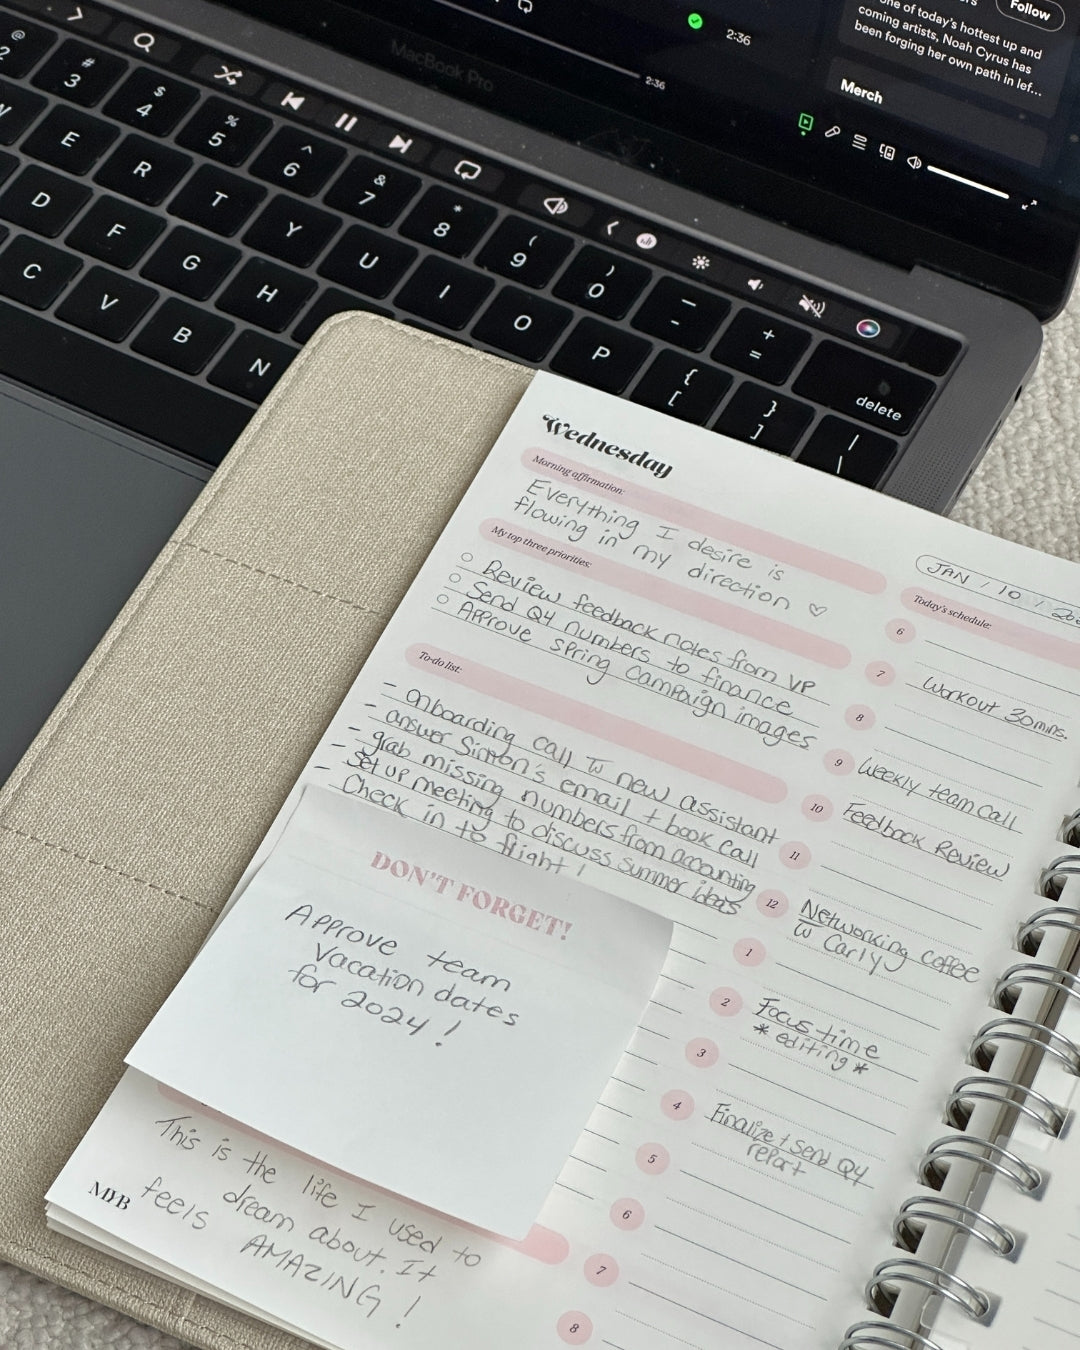 2:36
2:36
Follow
one of today's hottest up and
coming artists, Noah Cyrus has
been forging her own path in lef...
Merch
MacBook Pro
@
2
#
3
$
4
%
5
^
6
&
7
*
8
(
9
)
0
_
-
+
=
delete
E
R
T
Y
U
I
O
P
{
[
}
]
|
\
D
F
G
H
C
V
B
N
Wednesday
JAN / 10
Morning affirmation:
Everything I desire is
flowing in my direction ♡
My top three priorities:
Review feedback notes from VP
Send Q4 numbers to finance
Approve spring campaign images
To-do list:
- onboarding call w new assistant
- answer Simon's email + book call
- grab missing numbers from accounting
- set up meeting to discuss summer ideas
- Check in to flight!
DON'T FORGET!
Approve team
vacation dates
for 2024!
This is the life I used to
dream about. It
feels AMAZING!
MYB
Today's schedule:
6
7 Workout 30mins.
8
9 Weekly team call
10 Feedback Review
11
12 Networking coffee
w Carly
1
2 Focus time
* editing *
3
4 Finalize + send Q4
report
5
6
7
8